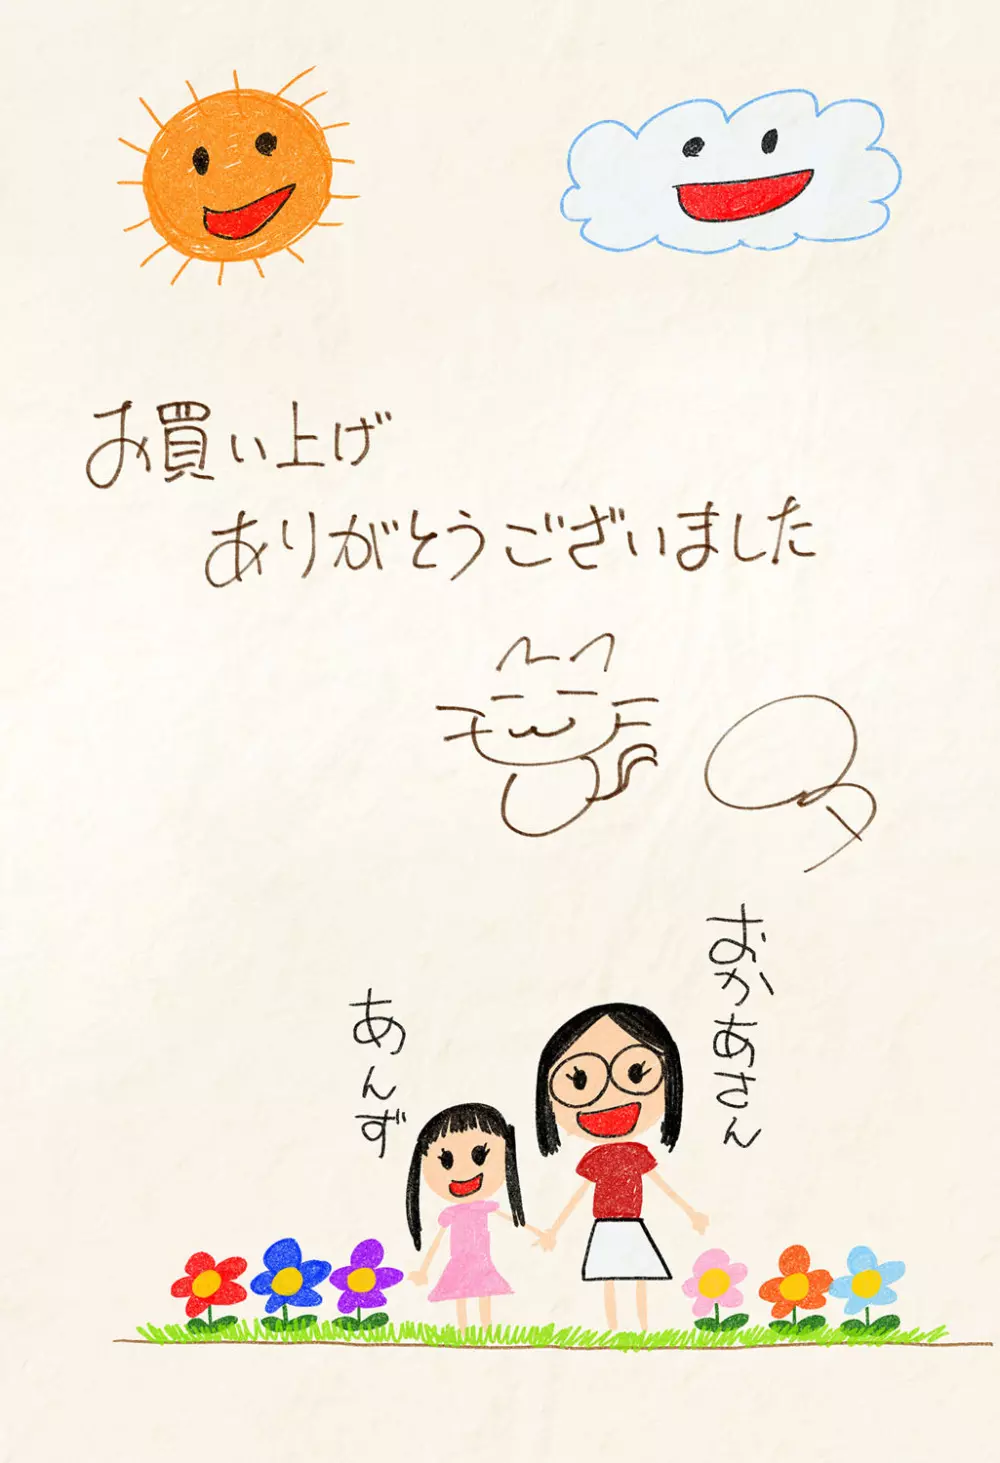 お買い上げ
ありがとうございました
おかあさん
あんず